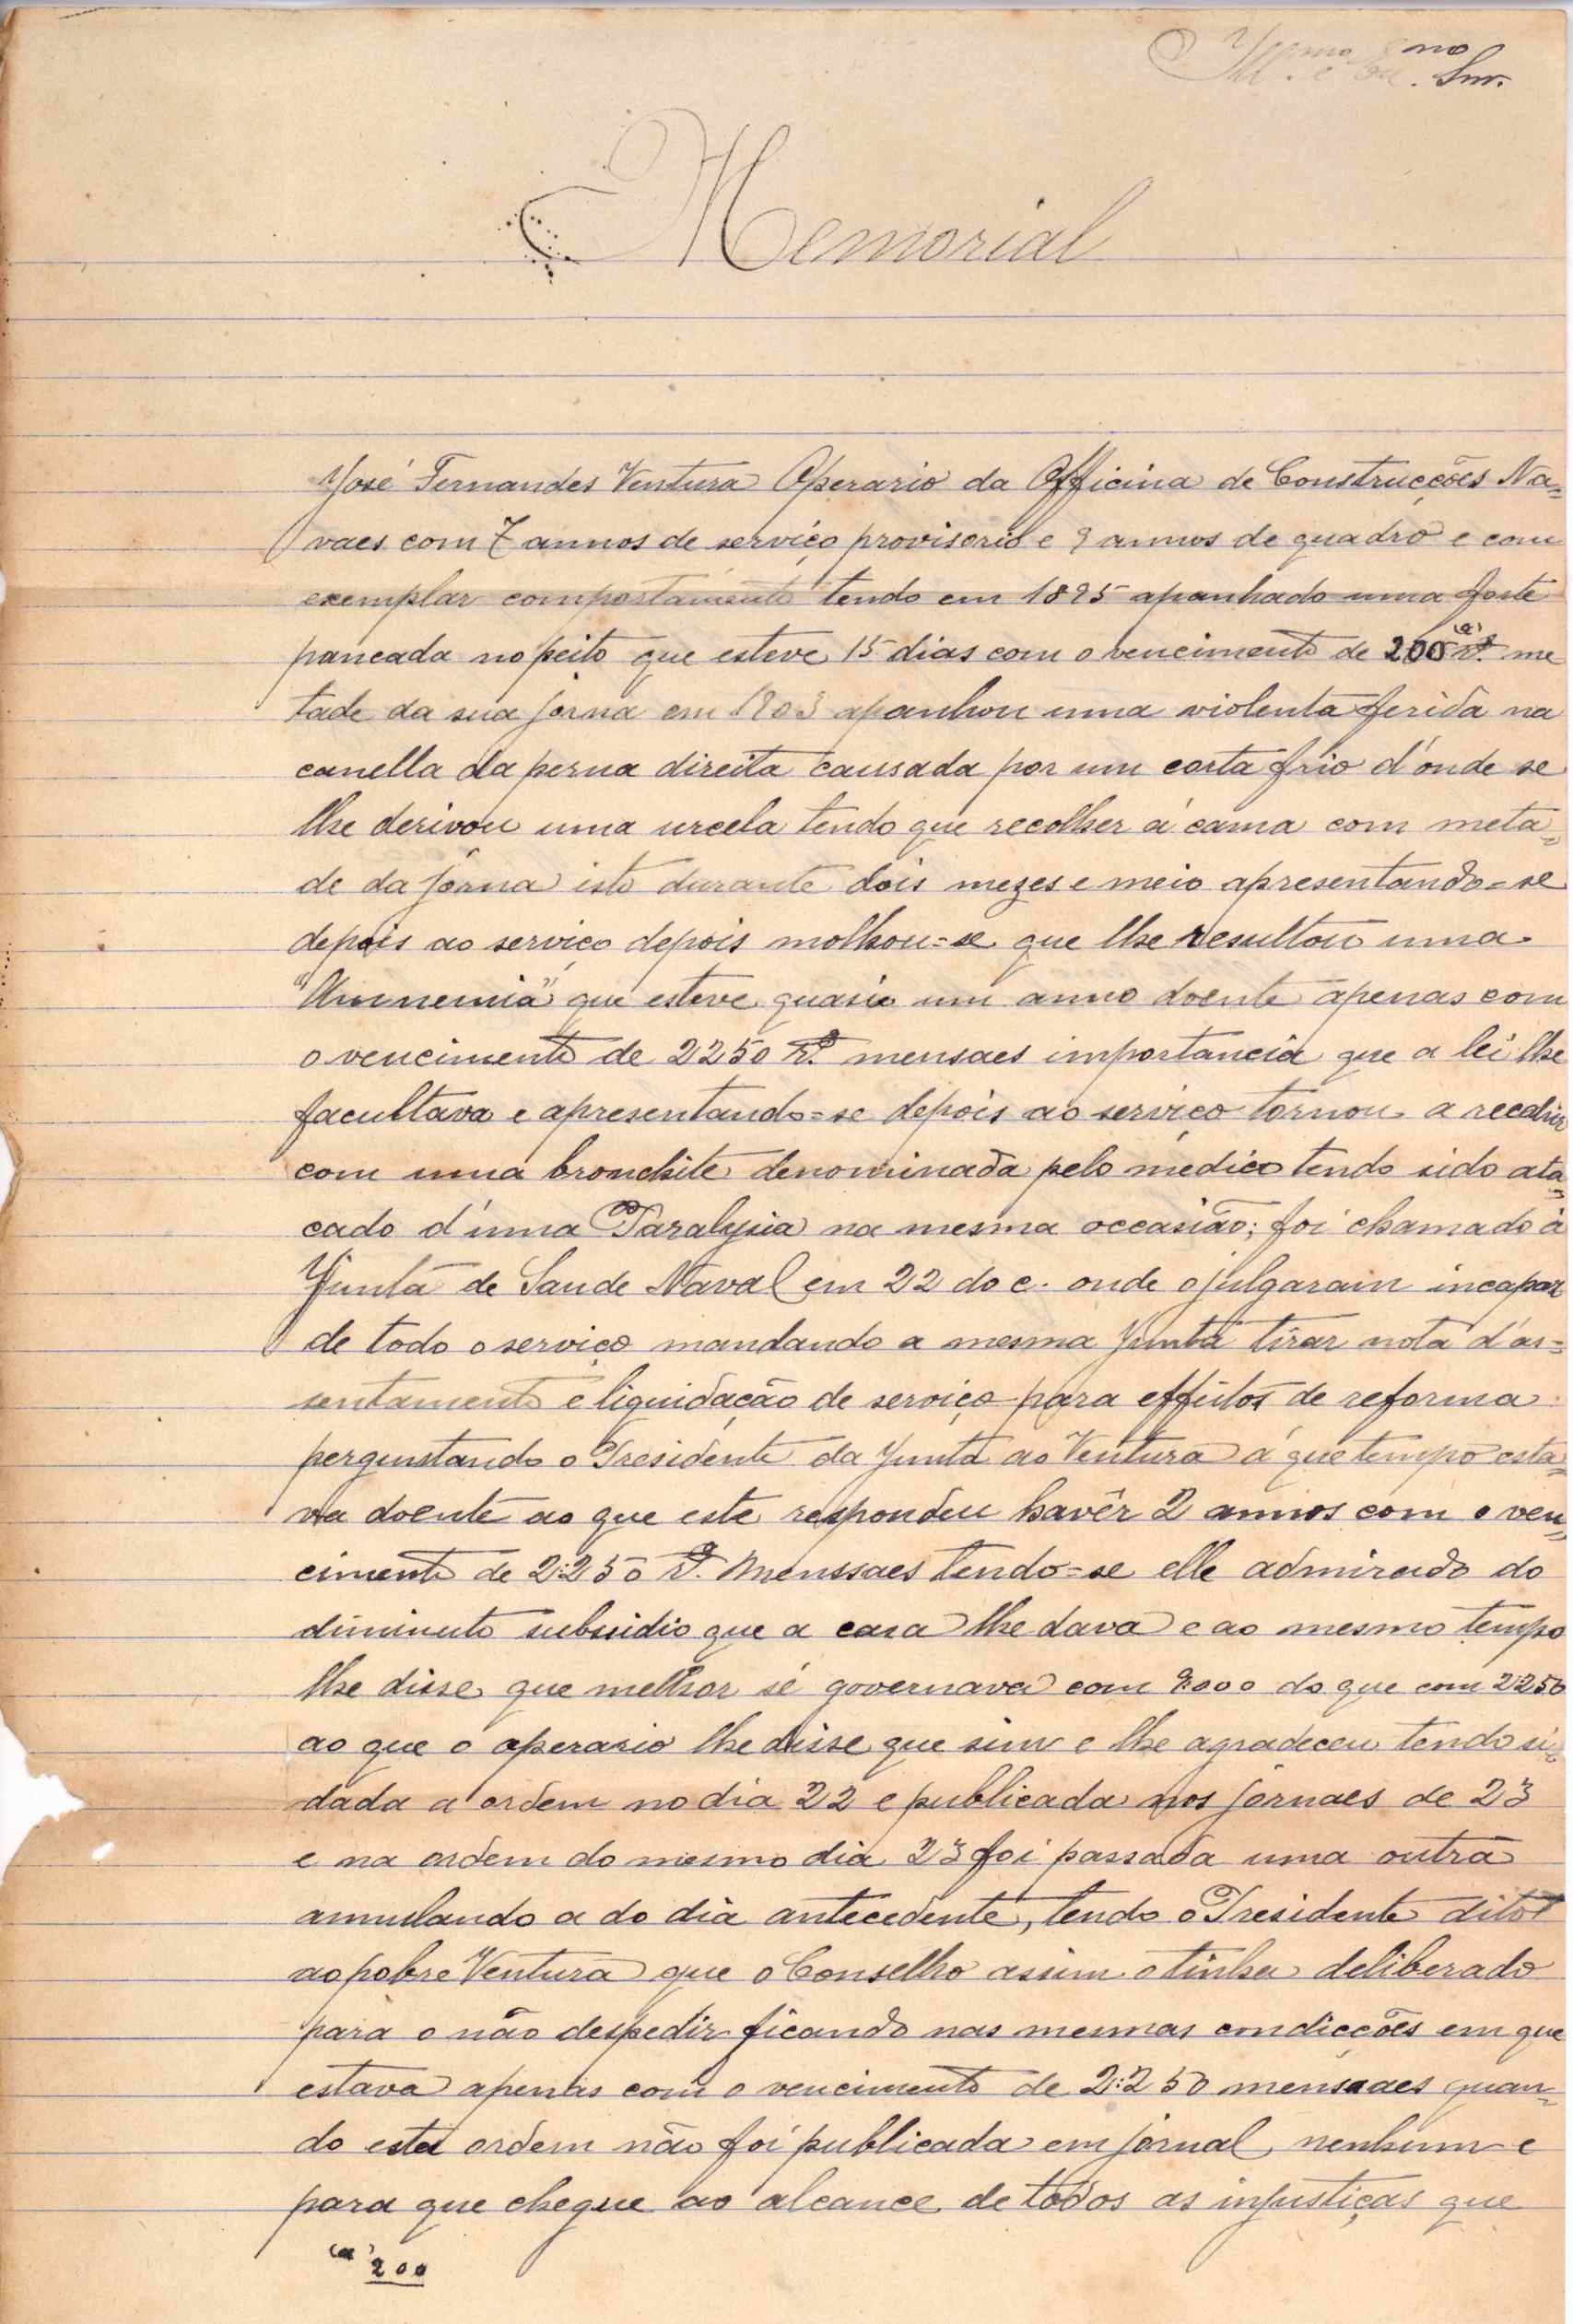 Ill.mo e Ex.mo Snr.
Memorial
José Fernandes Ventura Operario da Officina de Construcções Na=
vaes com 7 annos de serviço provisorio e 9 annos de quadro e com
exemplar comportamento tendo em 1895 apanhado uma forte
pancada no peito que esteve 15 dias com o vencimento de 200 (a) rs. me
tade da sua jorna em 1903 apanhou uma violenta ferida na
canella da perna direita causada por um corta frio d'onde se
lhe derivou uma urcela tendo que recolher á cama com meta=
de da jorna isto durante dois mezes e meio apresentando=se
depois ao serviço depois molhou=se que lhe resultou uma
"Annemia" que esteve quasie um anno doente apenas com
o vencimento de 2250 rs. mensaes importancia que a lei lhe
facultava e apresentando=se depois ao serviço tornou a recahir
com uma bronchite denominada pelo medico tendo sido ata=
cado d'uma Paralysia na mesma occasião; foi chamado á
Junta de Saude Naval em 22 do c. onde o julgaram incapaz
de todo o serviço mandando a mesma Junta tirar nota d'as=
sentamento e liquidação de serviço para effeitos de reforma
perguntando o Presidente da Junta ao Ventura á que tempo esta=
va doente ao que este respondeu havêr 2 annos com o ven=
cimento de 2:250 rs. Menssaes tendo=se elle admirado do
diminuto subsidio que a casa lhe dava e ao mesmo tempo
lhe disse que melhor se governava com 9.000 do que com 2:250
ao que o operario lhe disse que sim e lhe agradeceu tendo si=
dada a ordem no dia 22 e publicada nos jornaes de 23
e na ordem do mesmo dia 23 foi passada uma outra
annulando a do dia antecedente, tendo o Presidente dito
ao pobre Ventura que o Conselho assim o tinha deliberado
para o não despedir ficando nas mesmas condicções em que
estava apenas com o vencimento de 2:250 mensaes quan=
do esta ordem não foi publicada em jornal nenhum e
para que chegue ao alcance de todos as injustiças que
(a) 200